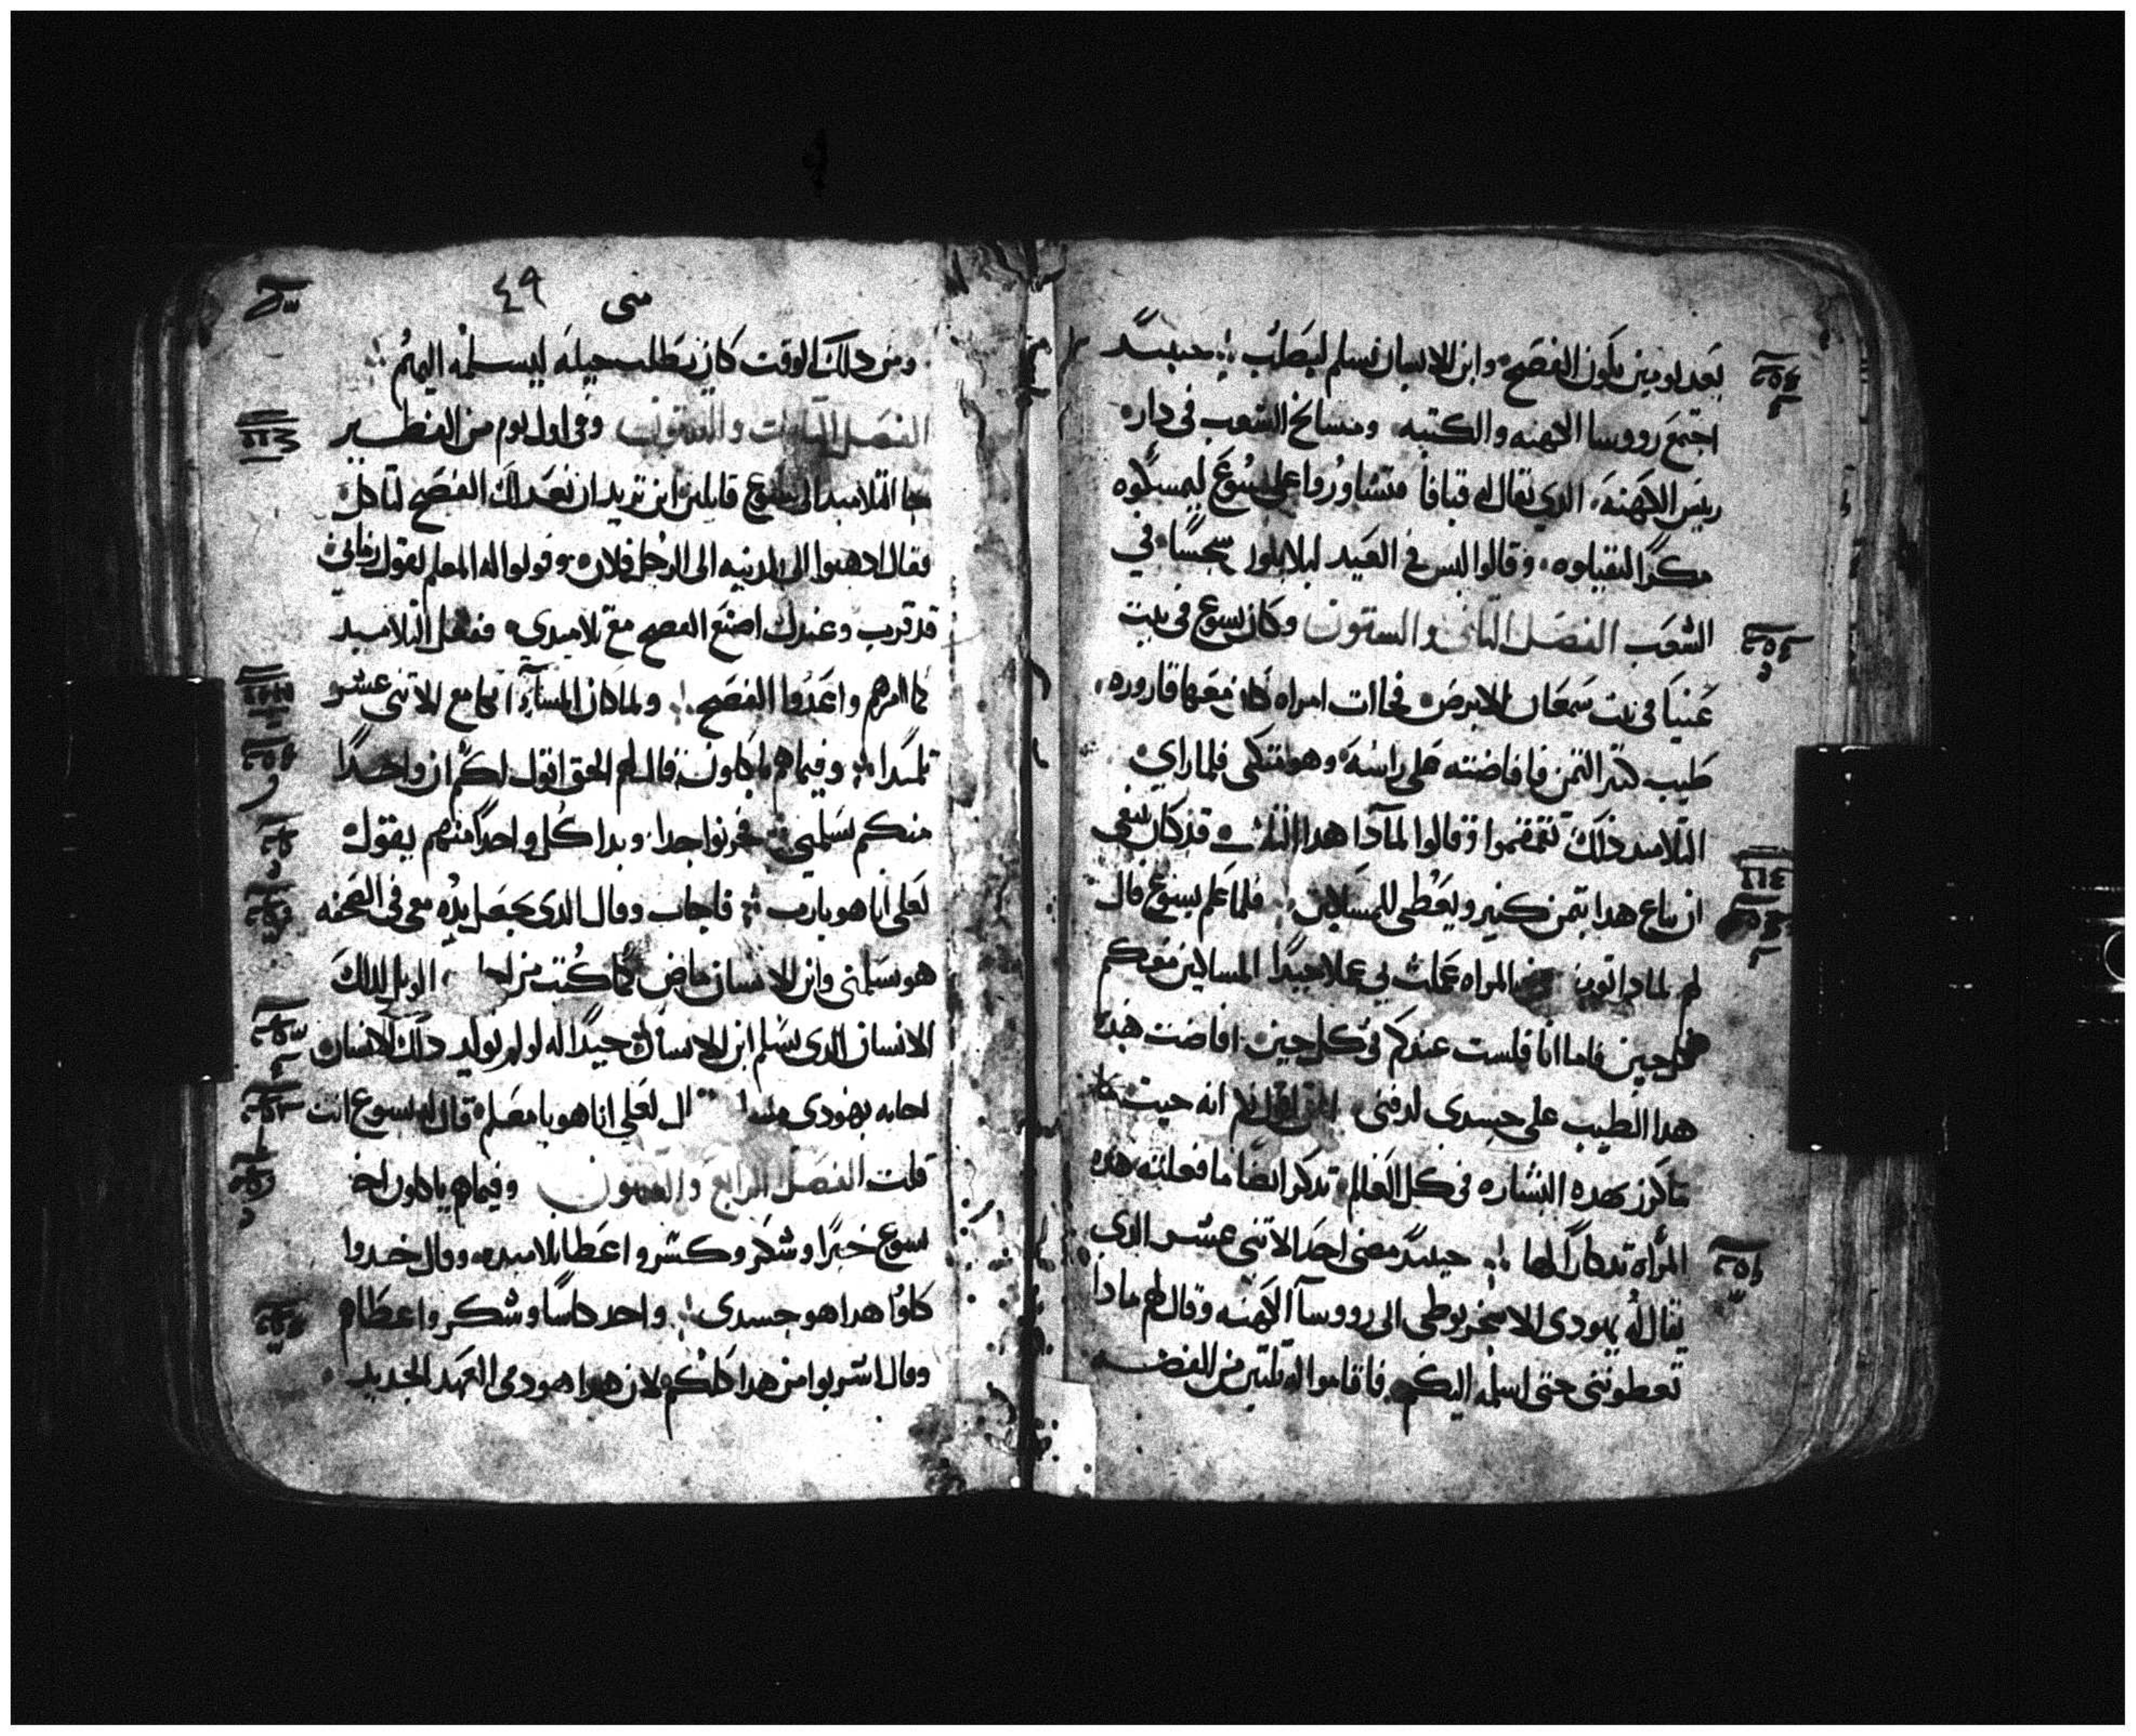 بعد يومين يكون الفصح وابن الانسان يسلم ليصلب حينيد
اجتمع رووسا الكهنه والكتبه ومسايخ الشعب في دار
ريس الكهنه الدي يقال له قيافا وتشاوروا على يسوع ليمسكوه
مكرا ليقتلوه وقالوا ليس في العيد ليلا يكون سجسا في
الشعب الفصل الثاني والستون وكان يسوع في بيت
عنيا في بيت سمعان الابرص فجاات امراه كان معها قاروره
طيب كتير التمن فافاضته على راسه وهو متكي فلما راي
التلاميد ذلك تقمقموا وقالوا لمادا هدا التلف قد كان ينبغي
ان يباع هدا بتمن كبير ويعطى للمساكين فلما علم يسوع قال
لهم لمادا تونبون المراه عملت بي عملا جيدا المساكين معكم
كل حين فاما انا فلست عندكم في كل حين افاضت هده
هدا الطيب على جسدي لدفني الحق اقول لكم انه حيت ما
ماكرز بهده البشاره في كل العالم تدكر ايضا ما فعلته هده
المراه تدكارا لها حينيد مضى احد الاتنى عشر الدي
يقال له يهودى الاسخريوطي الى رووسآ الكهنه وقال لهم مادا
تعطونني حتى اسلمه اليكم فاقاموا له تلتين من الفضه
متى ٤٩
ومن دلك الوقت كان يطلب حيله ليسلمه اليهم
الفصل التالت والستون وفي اول يوم من الفطير
جا التلاميد الى يسوع قايلين اين تريد ان نعد لك الفصح لتاكل
فقال ادهبوا الى المدينه الى الرجل فلان وقولوا له المعلم يقول زماني
قد قرب وعندك اصنع الفصح مع تلاميدي ففعل التلاميد
كما امرهم واعدوا الفصح ولما كان المسآء اتكا مع الاتنى عشر
تلميدا وفيما هم ياكلون قال لهم الحق اقول لكم ان واحدا
منكم يسلمني فحزنوا جدا وبدا كل واحد منهم يقول
لعلي انا هو يارب فاجاب وقال الدي يجعل يده معي في الصحفه
هو يسلمني وابن الانسان ماض كما كتب من اجله الويل لدلك
الانسان الدي يسلم ابن الانسان جيدا له لو لم يولد دلك الانسان
اجابه يهودى مسلمه قال لعلي انا هو يا معلم قال له يسوع انت
قلت الفصل الرابع والستون وفيما هم ياكلون اخد
يسوع خبزا وشكر وكسر واعطا تلاميده وقال خدوا
كلوا هدا هو جسدي واخد كاسا وشكر واعطاهم
وقال اشربوا من هدا كلكم لان هدا هو دمي العهد الجديد